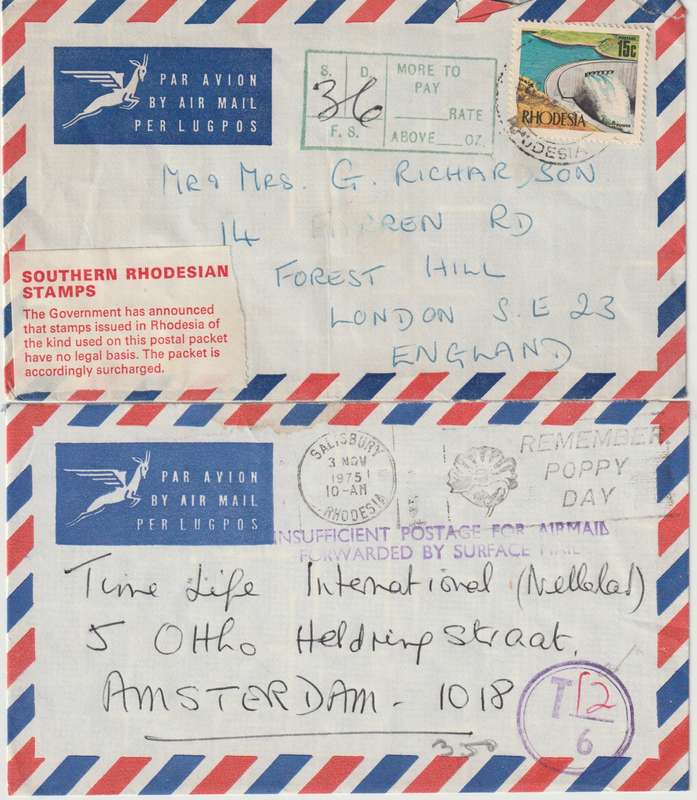 PAR AVION
BY AIR MAIL
PER LUGPOS
S. D.
36
F. S.
MORE TO
PAY
RATE
ABOVE OZ.
15c
RHODESIA
RHODESIA
MR & MRS. G. RICHARDSON
14 RD
FOREST HILL
LONDON S.E 23
ENGLAND
SOUTHERN RHODESIAN
STAMPS
The Government has announced
that stamps issued in Rhodesia of
the kind used on this postal packet
have no legal basis. The packet is
accordingly surcharged.
PAR AVION
BY AIR MAIL
PER LUGPOS
SALISBURY
3 NOV
1975
10-AM
RHODESIA
REMEMBER
POPPY
DAY
INSUFFICIENT POSTAGE FOR AIRMAIL
FORWARDED BY SURFACE MAIL
Time Life International (Nederland)
5 Ottho Heldring Straat,
AMSTERDAM - 1018
T 12
6
350